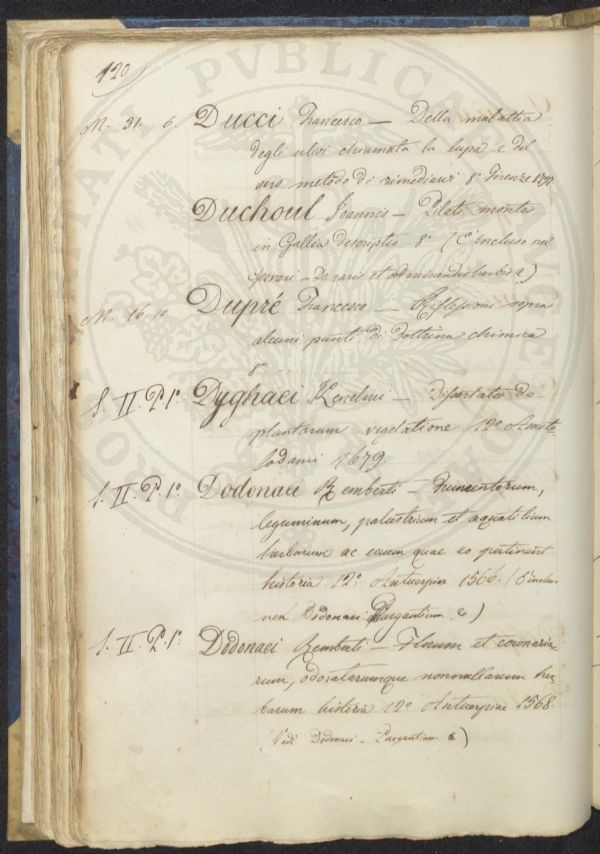 120
M. 31. 6. Ducci Francesco — Della malattia
degli ulivi chiamata la lupa e del
vero metodo di rimediarvi 8° Firenze 1792
Duchoul Joannis — Pilati montis
in Gallia descriptio 8° (È incluso nel
Gesneri — De raris et admirandis herbis &)
M. 16. 10. Dupré Francesco — Riflessioni sopra
alcuni punti di dottrina chimica
8°
S. II. P. 1°. Dyghaei Kenelmi — Dissertatio de
plantarum vegetatione 12° Amste
lodami 1679
S. II. P. 1°. Dodonaei Remberti — Frumentorum,
leguminum, palustrium et aquatilium
herbarum ac eorum quae eo pertinent
historia 12° Antuerpiae 1566. (È inclu-
nel Dodonaei Purgantium &)
S. II. P. 1°. Dodonaei Remberti — Florum et coronaria
rum, odoratarumque nonnullarum her
barum historia 12° Antuerpiae 1568
Vedi Dodonaei — Purgantium &)